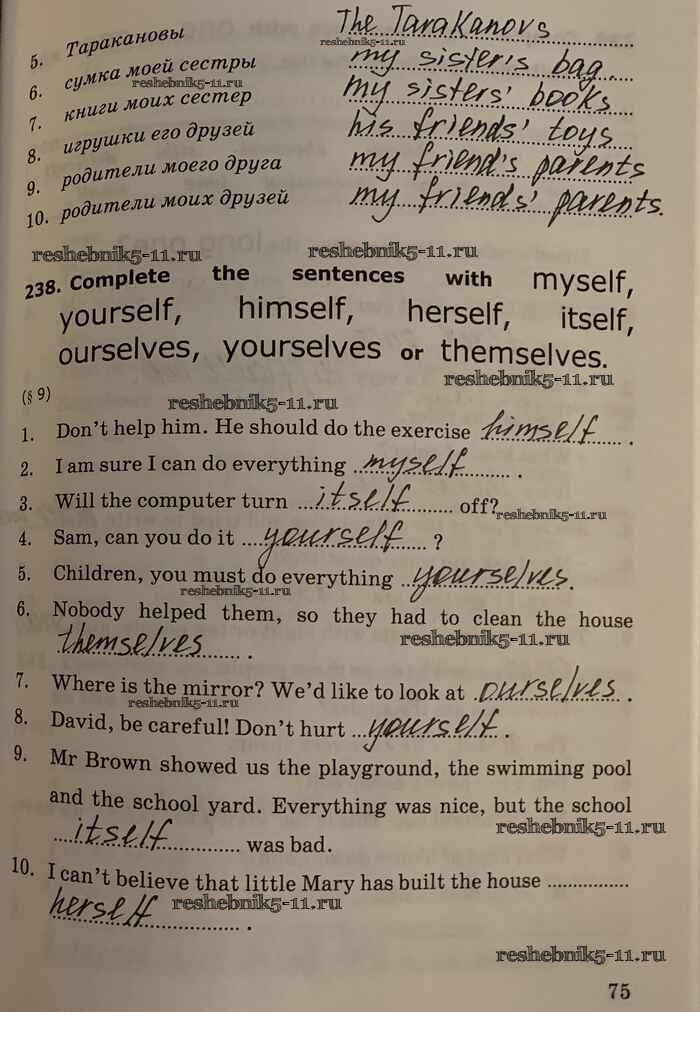 5. Таракановы The Tarakanovs
reshebnik5-11.ru
6. сумка моей сестры my sister's bag
reshebnik5-11.ru
7. книги моих сестер my sisters' books
8. игрушки его друзей his friends' toys
9. родители моего друга my friend's parents
10. родители моих друзей my friends' parents.
reshebnik5-11.ru reshebnik5-11.ru
238. Complete the sentences with myself,
yourself, himself, herself, itself,
ourselves, yourselves or themselves.
reshebnik5-11.ru
(§ 9)
reshebnik5-11.ru
1. Don't help him. He should do the exercise himself .
2. I am sure I can do everything myself .
3. Will the computer turn itself off?
reshebnik5-11.ru
4. Sam, can you do it yourself ?
5. Children, you must do everything yourselves.
reshebnik5-11.ru
6. Nobody helped them, so they had to clean the house
themselves .
reshebnik5-11.ru
7. Where is the mirror? We'd like to look at ourselves .
reshebnik5-11.ru
8. David, be careful! Don't hurt yourself .
9. Mr Brown showed us the playground, the swimming pool
and the school yard. Everything was nice, but the school
itself was bad.
reshebnik5-11.ru
10. I can't believe that little Mary has built the house ................
herself .
reshebnik5-11.ru
reshebnik5-11.ru
75